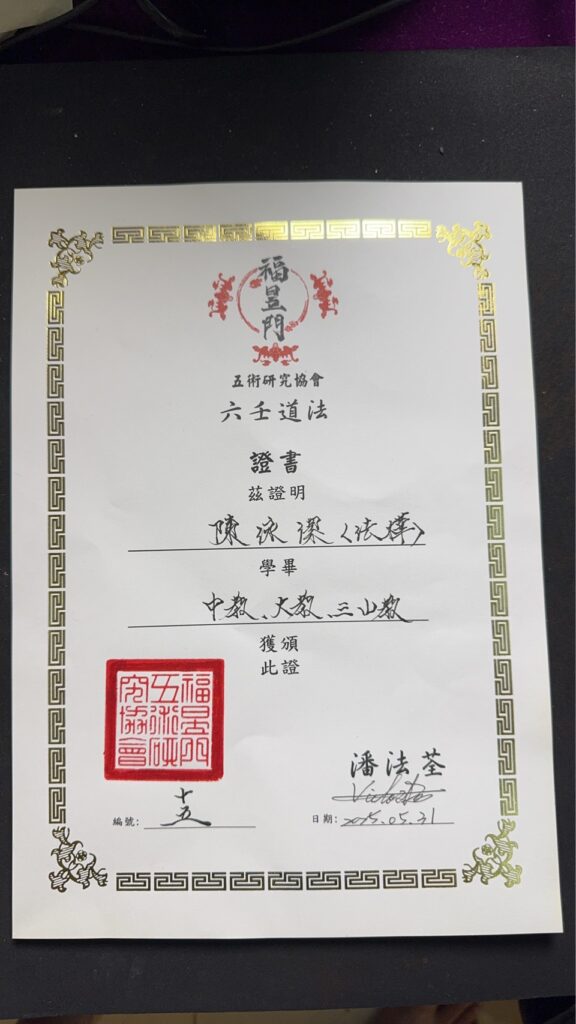 福昱門
五術研究協會
六壬道法
證書
茲證明
陳泳潔〈法樺〉
學畢
中教、大教、三山教
獲頒
此證
福昱門
五術研
究協會
潘法荃
編號: 十五
日期: 2025.05.31